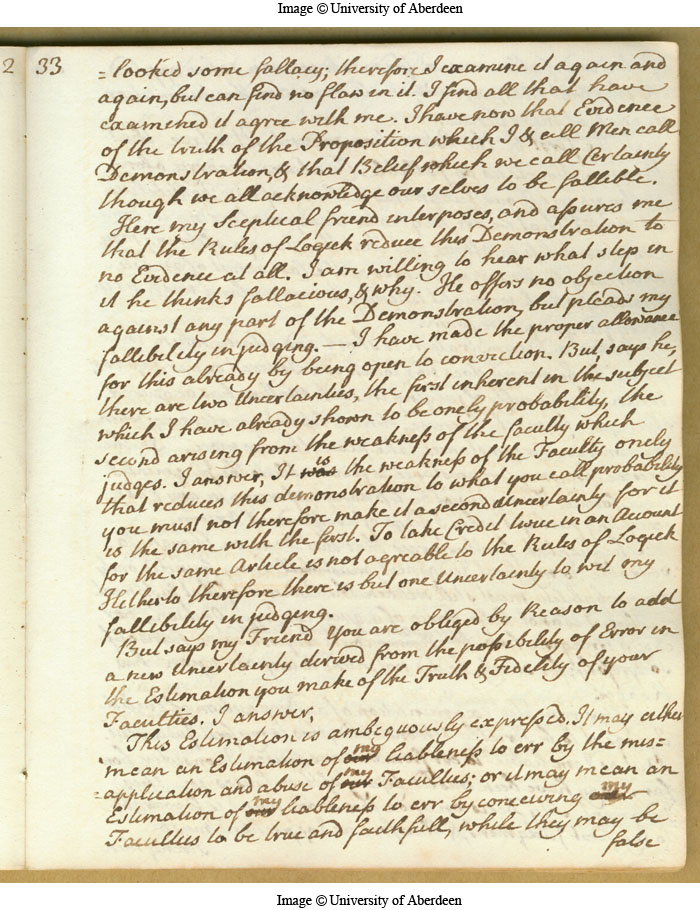 Image © University of Aberdeen
2 33
=looked some fallacy; therefore I examine it again and
again, but can find no flaw in it. I find all that have
examined it agree with me. I have now that Evidence
of the truth of the Proposition which I & all Men call
Demonstration, & that Belief which we call Certainty
though we all acknowledge our selves to be fallible.
Here my Sceptical friend interposes, and assures me
that the Rules of Logick reduce this Demonstration to
no Evidence at all. I am willing to hear what step in
it he thinks fallacious, & why. He offers no objection
against any part of the Demonstration, but pleads my
fallibility in judging. — I have made the proper allowance
for this already by being open to conviction. But, says he,
there are two Uncertainties, the first inherent in the subject
which I have already shown to be onely probability, the
second arising from the weakness of the faculty which
judges. I answer, It was is the weakness of the Faculty onely
that reduces this demonstration to what you call probability
you must not therefore make it a second Uncertainty for it
is the same with the first. To take Credit twice in an Account
for the same Article is not agreable to the Rules of Logick
Hitherto therefore there is but one Uncertainty to wit my
fallibility in judging.
But says my Friend you are obliged by Reason to add
a new Uncertainty derived from the possibility of Error in
the Estimation you make of the Truth & Fidelity of your
Faculties. I answer,
This Estimation is ambiguously expressed. It may either
mean an Estimation of our my liableness to err by the mis=
=application and abuse of our my Faculties; or it may mean an
Estimation of our my liableness to err by conceiving our my
Faculties to be true and faithfull, while they may be
false
Image © University of Aberdeen